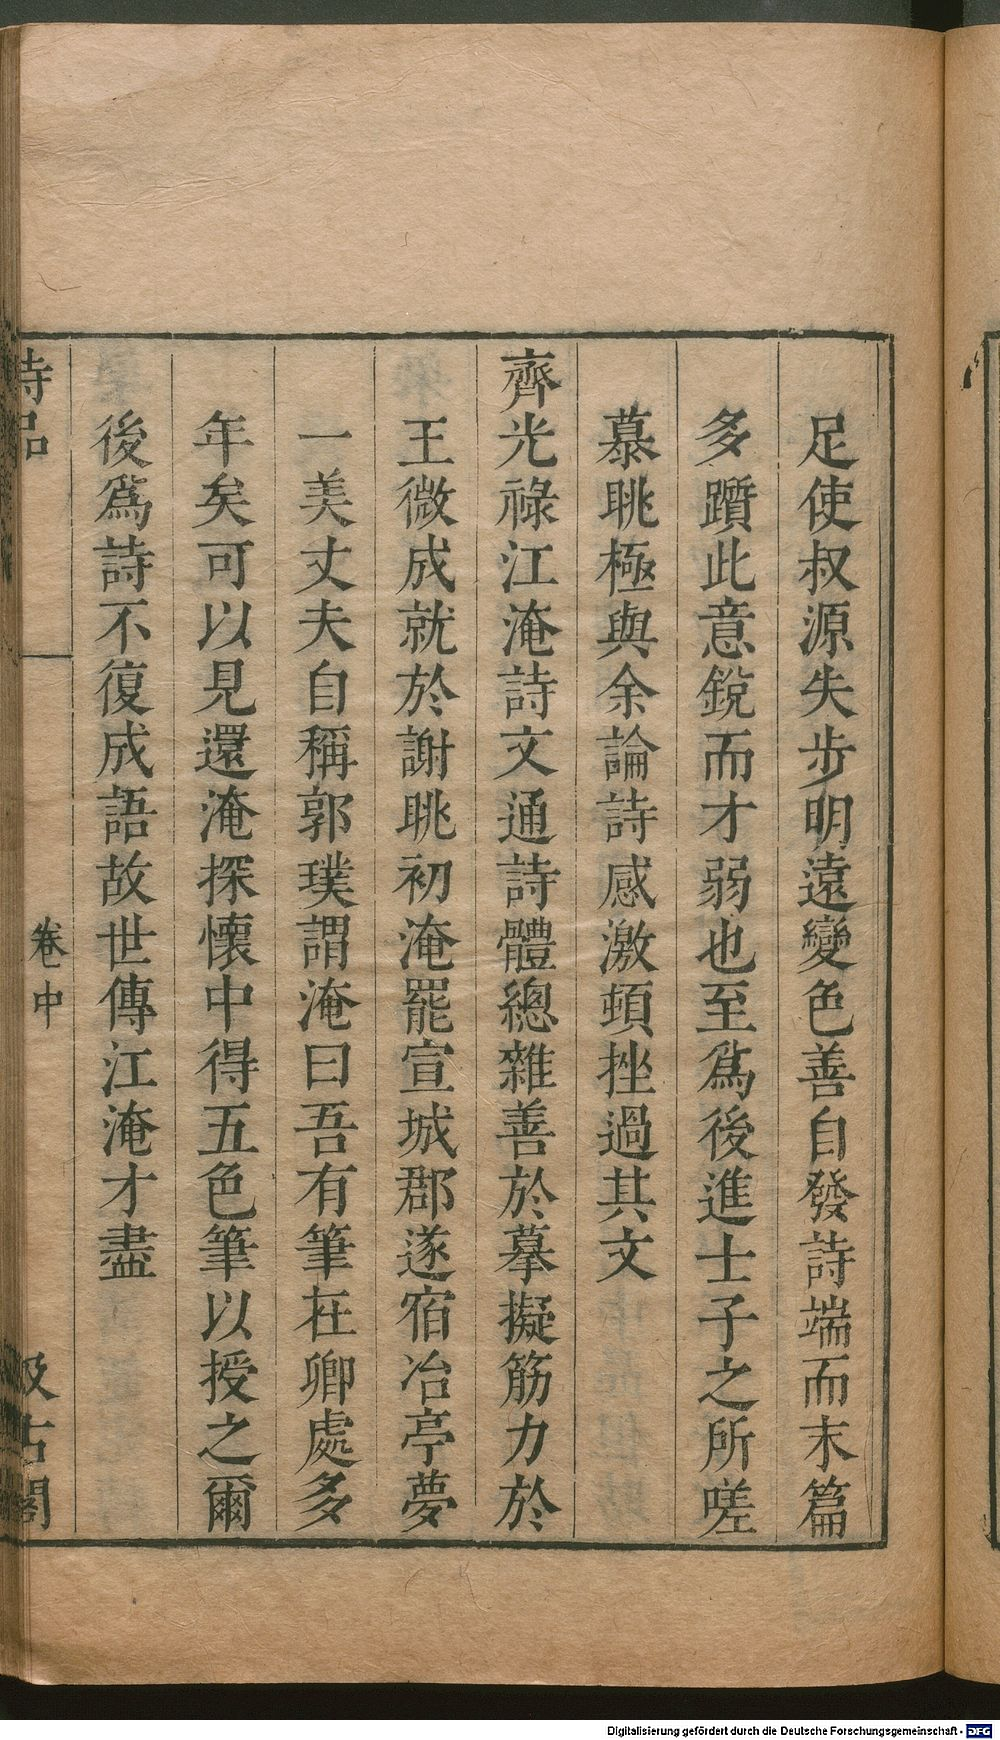 足使叔源失步明遠變色善自發詩端而末篇
多躓此意銳而才弱也至爲後進士子之所嗟
慕眺極與余論詩感激頓挫過其文
齊光祿江淹詩文通詩體總雜善於摹擬筋力於
王微成就於謝眺初淹罷宣城郡遂宿冶亭夢
一美丈夫自稱郭璞謂淹曰吾有筆在卿處多
年矣可以見還淹探懷中得五色筆以授之爾
後爲詩不復成語故世傳江淹才盡
詩品 卷中 汲古閣
Digitalisierung gefördert durch die Deutsche Forschungsgemeinschaft - DFG